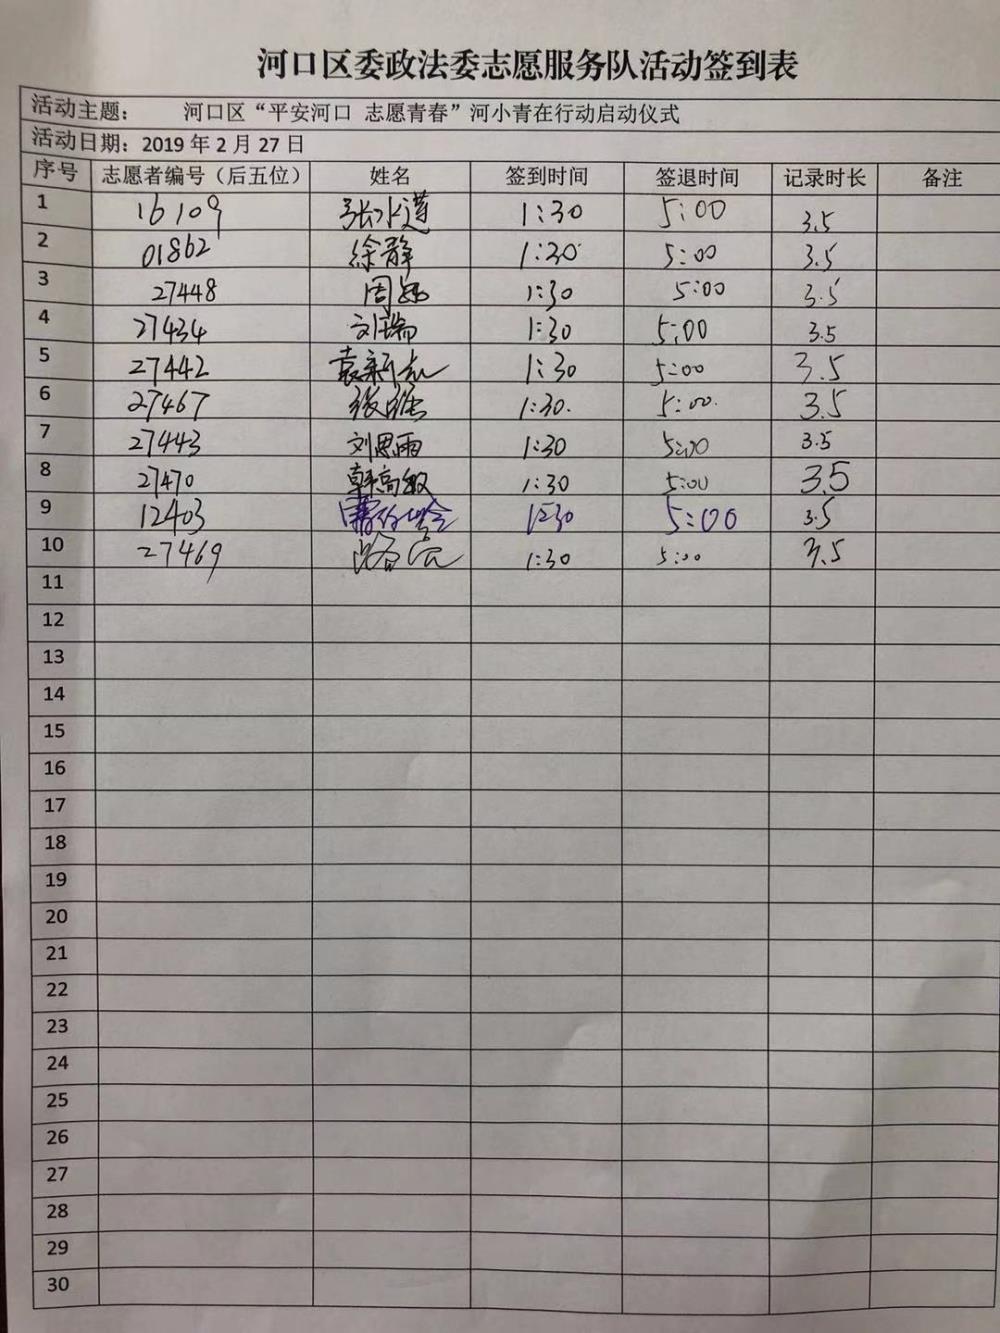 河口区委政法委志愿服务队活动签到表
活动主题： 河口区“平安河口 志愿青春”河小青在行动启动仪式
活动日期：2019 年 2 月 27 日
序号 志愿者编号（后五位） 姓名 签到时间 签退时间 记录时长 备注
1 16109 张冰莲 1:30 5:00 3.5
2 01862 徐静 1:30 5:00 3.5
3 27448 周 1:30 5:00 3.5
4 27434 刘瑞 1:30 5:00 3.5
5 27442 袁新 1:30 5:00 3.5
6 27467 1:30. 5:00. 3.5
7 27443 刘思雨 1:30 5:00 3.5
8 27470 韩高敏 1:30 5:00 3.5
9 12403 1:30 5:00 3.5
10 27469 1:30 5:00 3.5
11
12
13
14
15
16
17
18
19
20
21
22
23
24
25
26
27
28
29
30